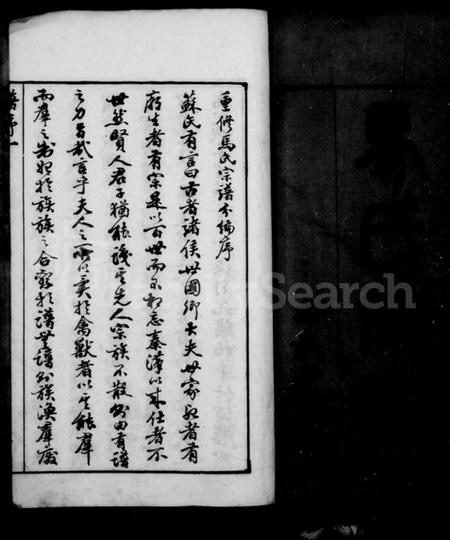 重修馬氏宗譜分編序
蘇氏有言曰古者諸侯世國卿大夫世家死者有
廟生者有宗是以百世而不相忘秦漢以來仕者不
世然賢人君子猶能識其先人宗族不散者由有譜
之力旨哉言乎夫人之所以異於禽獸者以其能群
而群之制始於族族之合寄於譜無譜則族渙群廢
譜序一
FamilySearch